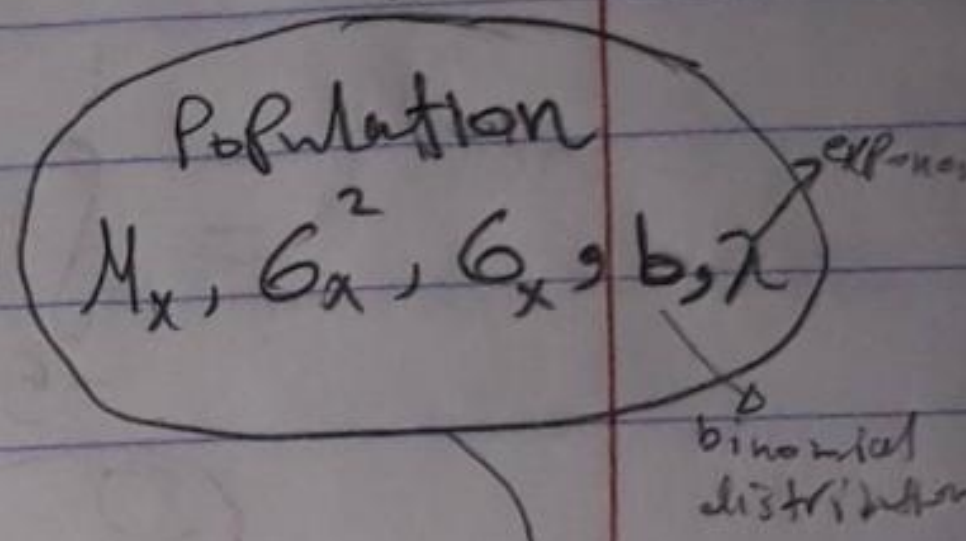 Population
μₓ, σₓ², σₓ, b, λ
binomial
distribution